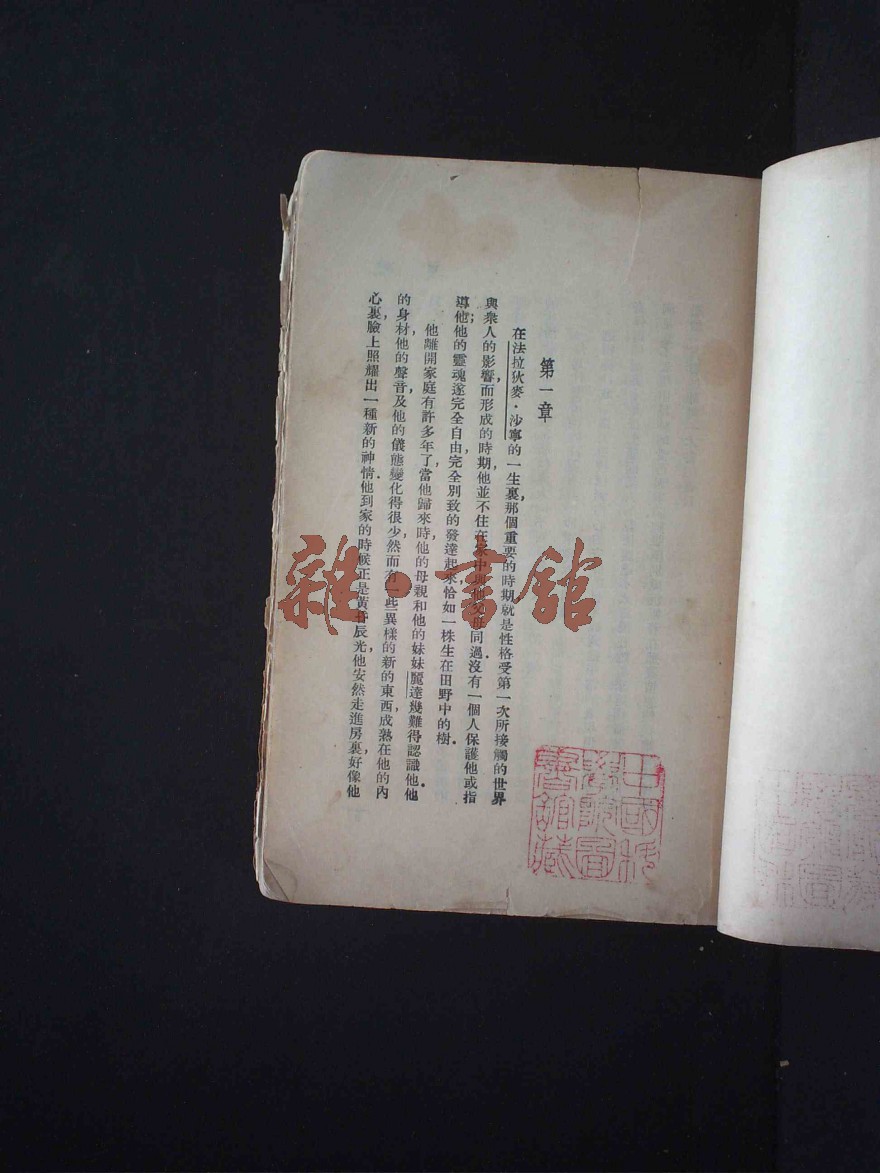 第一章
在法拉狄麥·沙寧的一生裏，那個重要的時期就是性格受第一次所接觸的世界
與衆人的影響而形成的時期，他並不住在家中與他父母同過。沒有一個人保護他或指
導他；他的靈魂遂完全自由，完全別致的發達起來，恰如一株生在田野中的樹。
他離開家庭有許多年了，當他歸來時，他的母親和他的妹妹麗達幾難得認識他。他
的身材，他的聲音，及他的儀態變化得很少，然而有一些異樣的新的東西，成熟在他的內
心裏，臉上照耀出一種新的神情。他到家的時候正是黃昏辰光，他安然走進房裏，好像他
雜·書館
中國
圖
書館藏